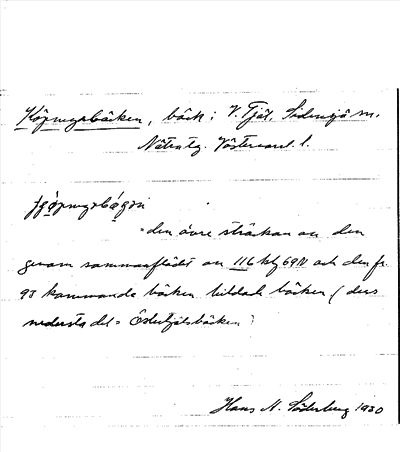 Köpingsbäcken, bäck i V. Tjäl, Sidensjö sn.
Nätra tg. Västernorrl. l.
den övre sträckan av den
genom sammanflödet av 116 och 69N och den fr.
95 kommande bäcken bildade bäcken (dess
nedersta del = Östertjälsbäcken)
Hans N. Söderberg 1930